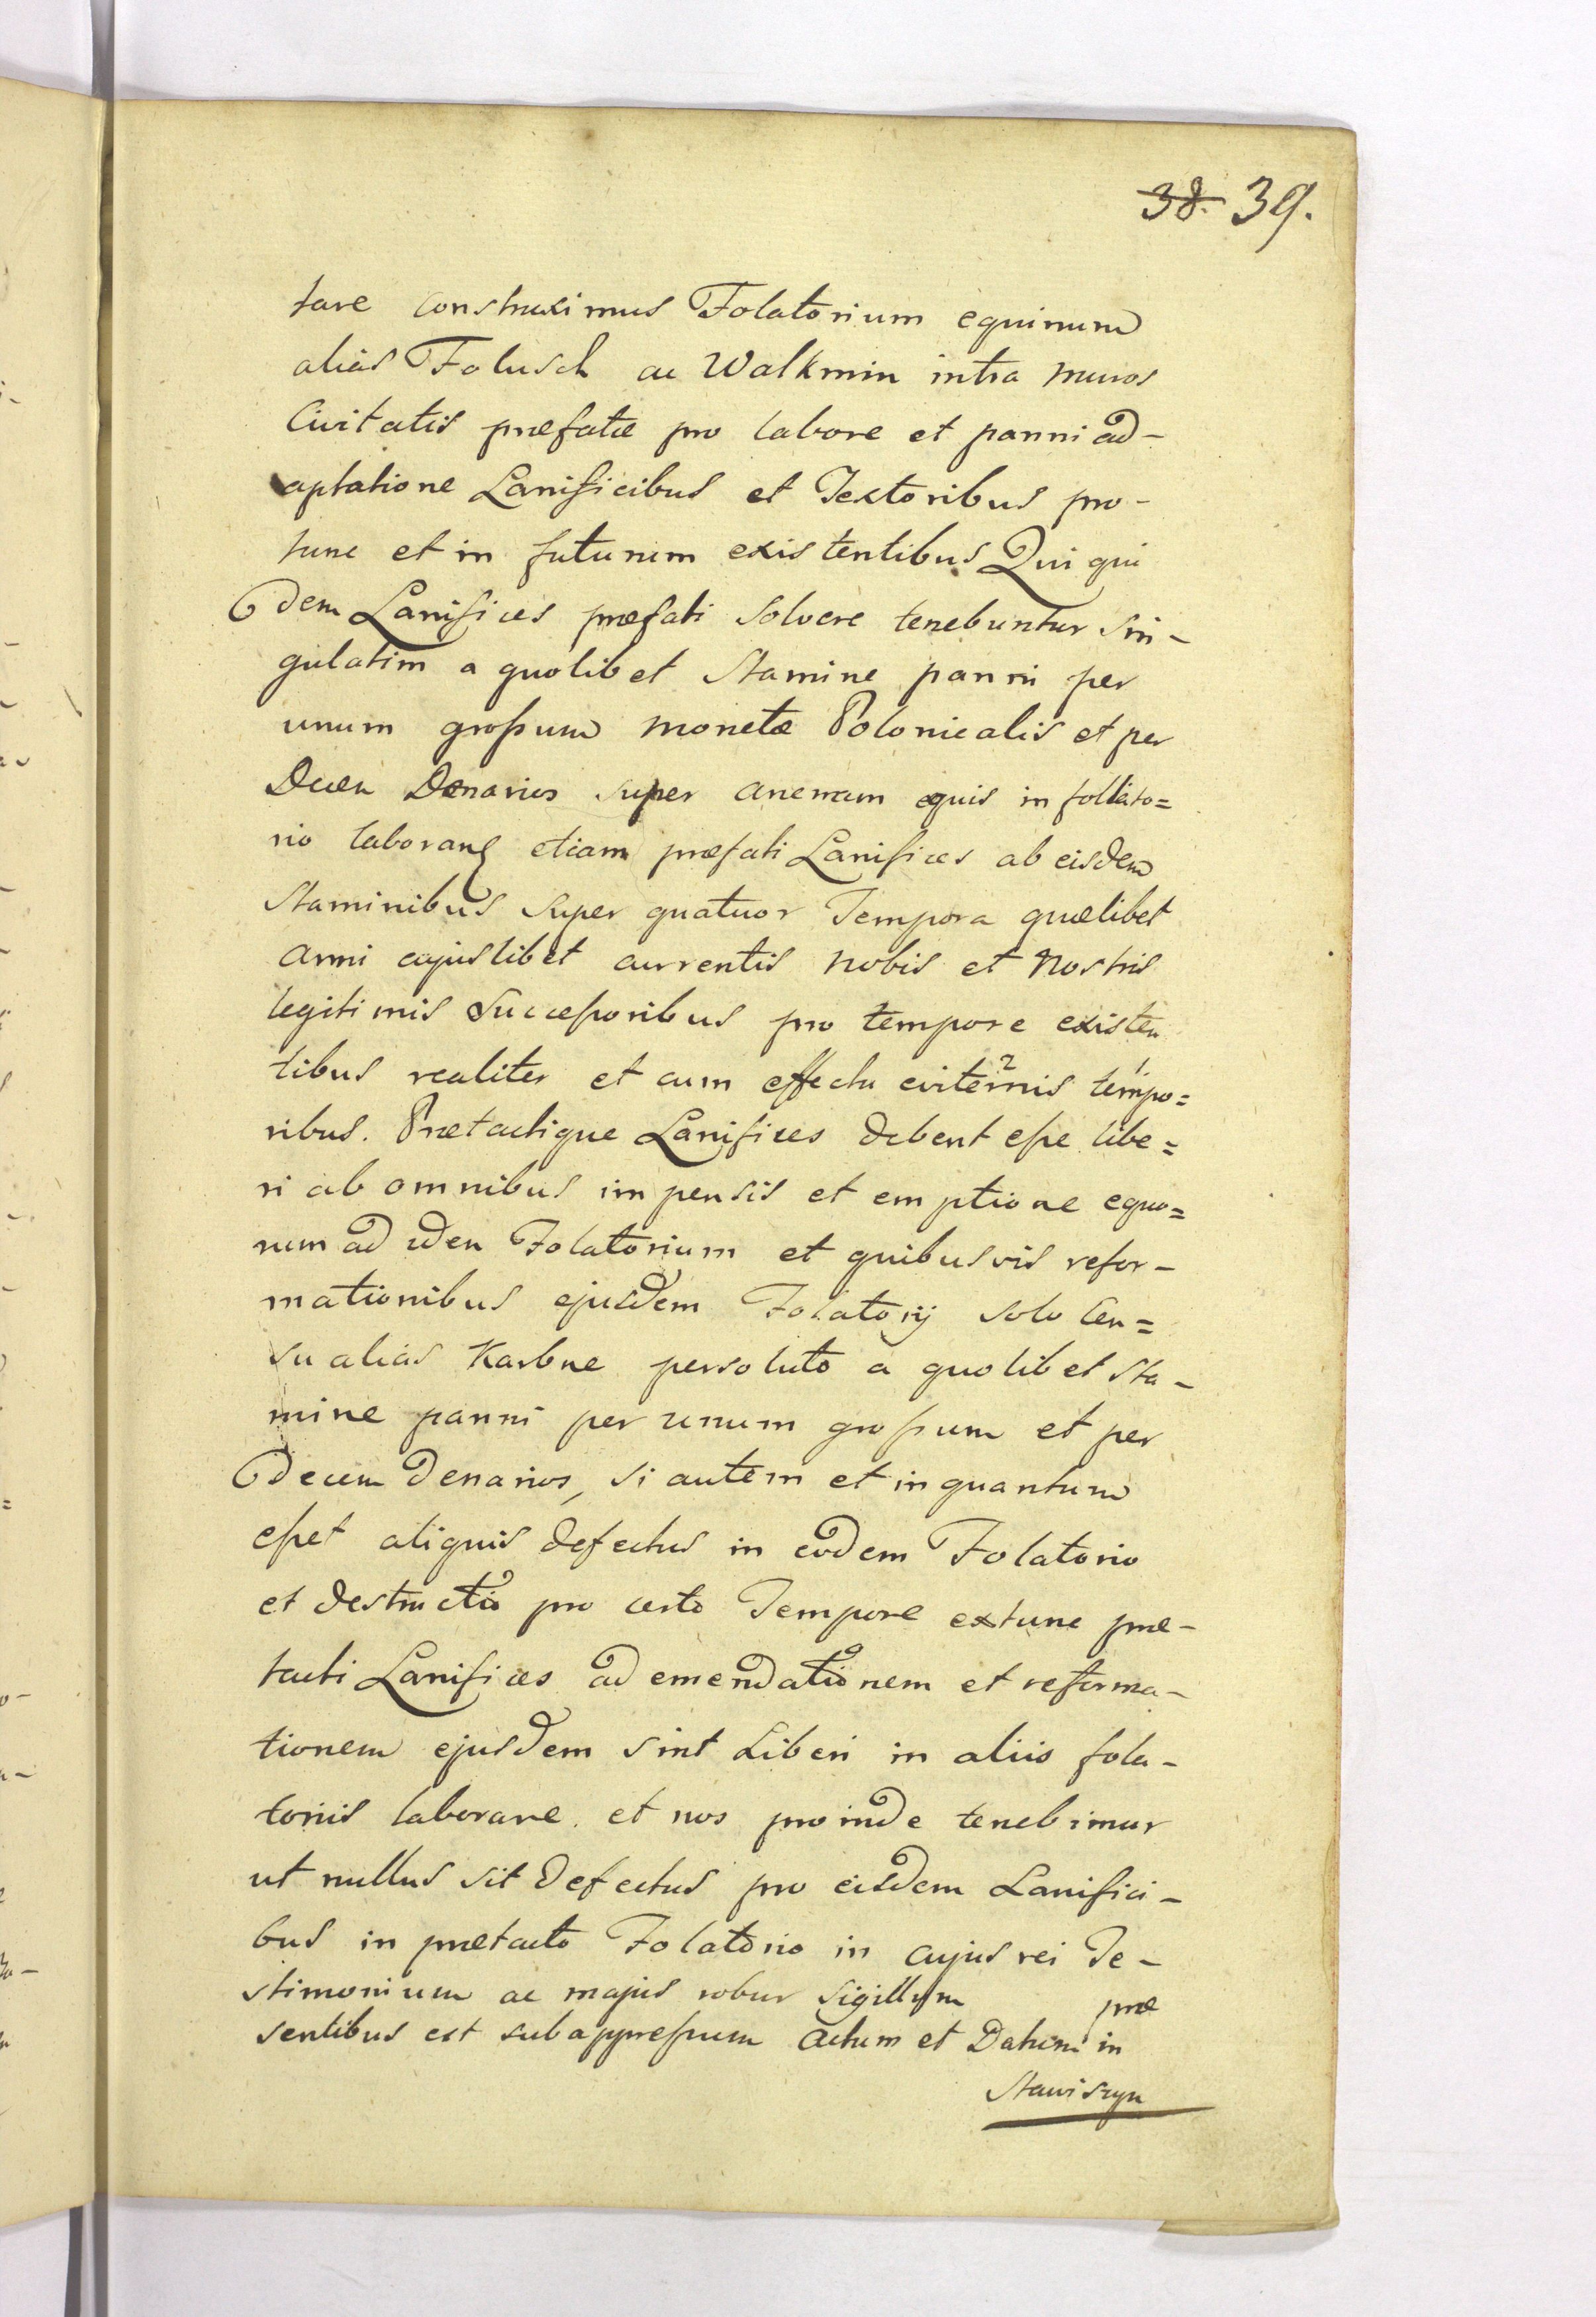 38. 39.
tare construximus Folatorium equinum
aliàs Folusch ac Walkmin intra muros
Civitatis præfatæ pro labore et panni ad-
aptatione Lanificibus et Textoribus pro-
tunc et in futurum existentibus Qui qui
dem Lanifices præfati solvere tenebuntur sin-
gulatim a quolibet Stamine panni per
unum grossum monetæ Polonicalis et per
Decem Denarios super anenam equis in follato=
rio laborang etiam præfati Lanifices ab eisdem
Staminibus super quatuor Tempora quælibet
anni cujuslibet currentis nobis et Nostris
legitimis Successoribus pro tempore existen
tibus realiter et cum effectu eviternis tempo=
ribus. Prætactique Lanifices debent esse libe=
ri ab omnibus impensis et emptione equo=
rum ad idem Folatorium et quibusvis refor-
mationibus ejusdem Folatorij solo Cen=
su aliàs Karbne persoluto a quolibet sta-
mine panni per unum grossum et per
decem Denarios, si autem et in quantum
esset aliquis defectus in eodem Folatorio
et destructio pro certo Tempore extunc præ-
tacti Lanifices ad emendationem et reforma-
tionem ejusdem sint Liberi in aliis fola-
toriis laborare. et nos proinde tenebimur
ut nullus sit defectus pro eisdem Lanifici-
bus in prætacto Folatorio in cujus rei Te-
stimonium ac majus robur Sigillum præ
sentibus est subappressum Actum et Datum in
Stawiszyn